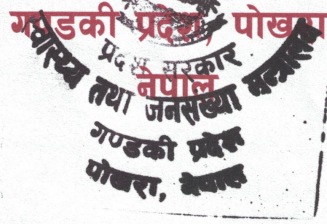 गण्डकी प्रदेश, पोखरा
प्रदेश सरकार
नेपाल
स्वास्थ्य तथा जनसंख्या मन्त्रालय
गण्डकी प्रदेश
पोखरा, नेपाल